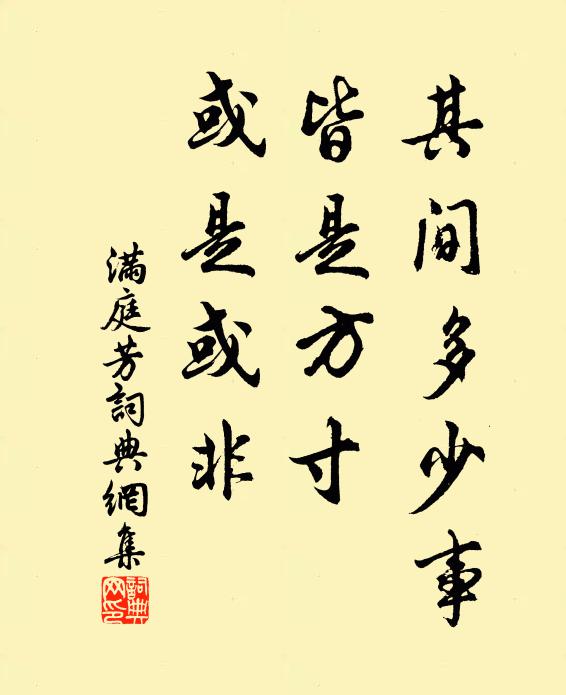 其間多少事
皆是方寸
或是或非
滿庭芳詞典網集
詞典网印